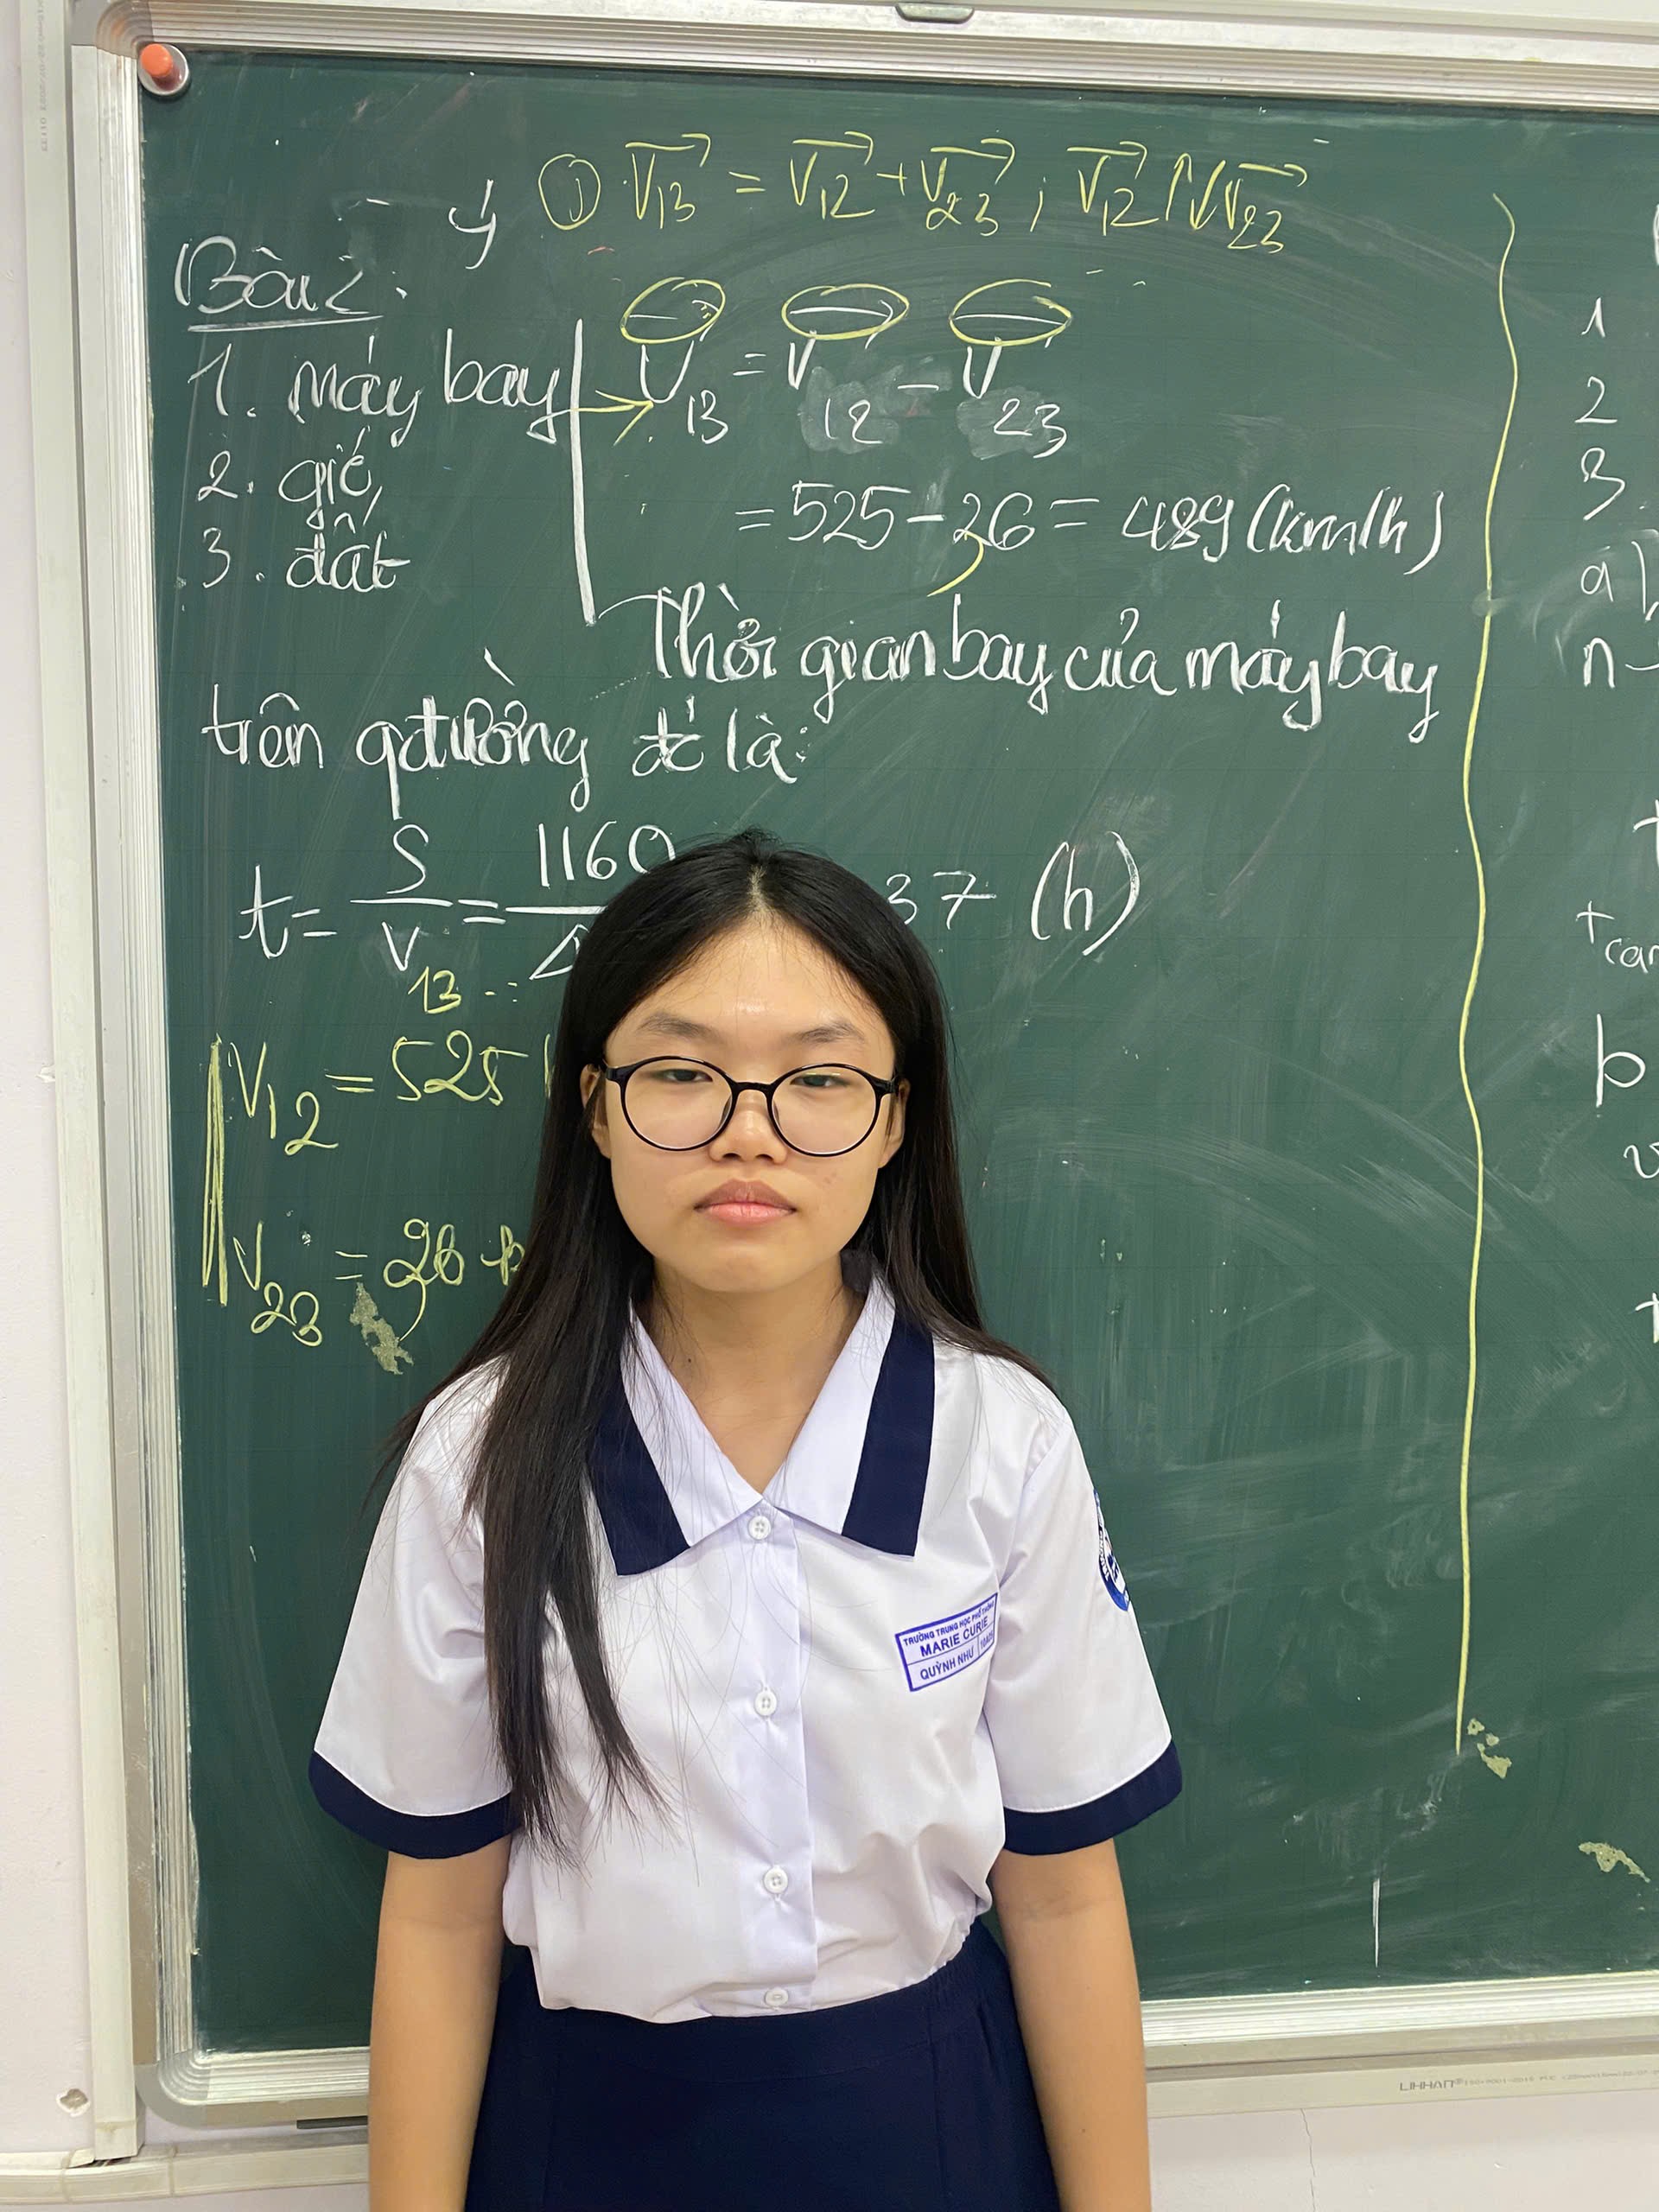 ý ① V₁₃ = V₁₂ + V₂₃ ; V₁₂ ↑↓ V₂₃
Bài 2:
1. máy bay
2. gió,
3. đất
V₁₃ = V₁₂ - V₂₃
= 525 - 36 = 489 (km/h)
Thời gian bay của máy bay
trên qđường đó là:
t = S / V₁₃ = 1160
37 (h)
V₁₂ = 525
V₂₃ = 36
TRƯỜNG TRUNG HỌC PHỔ THÔNG
MARIE CURIE
QUỲNH NHƯ
1
2
3
a)
n-
t
b